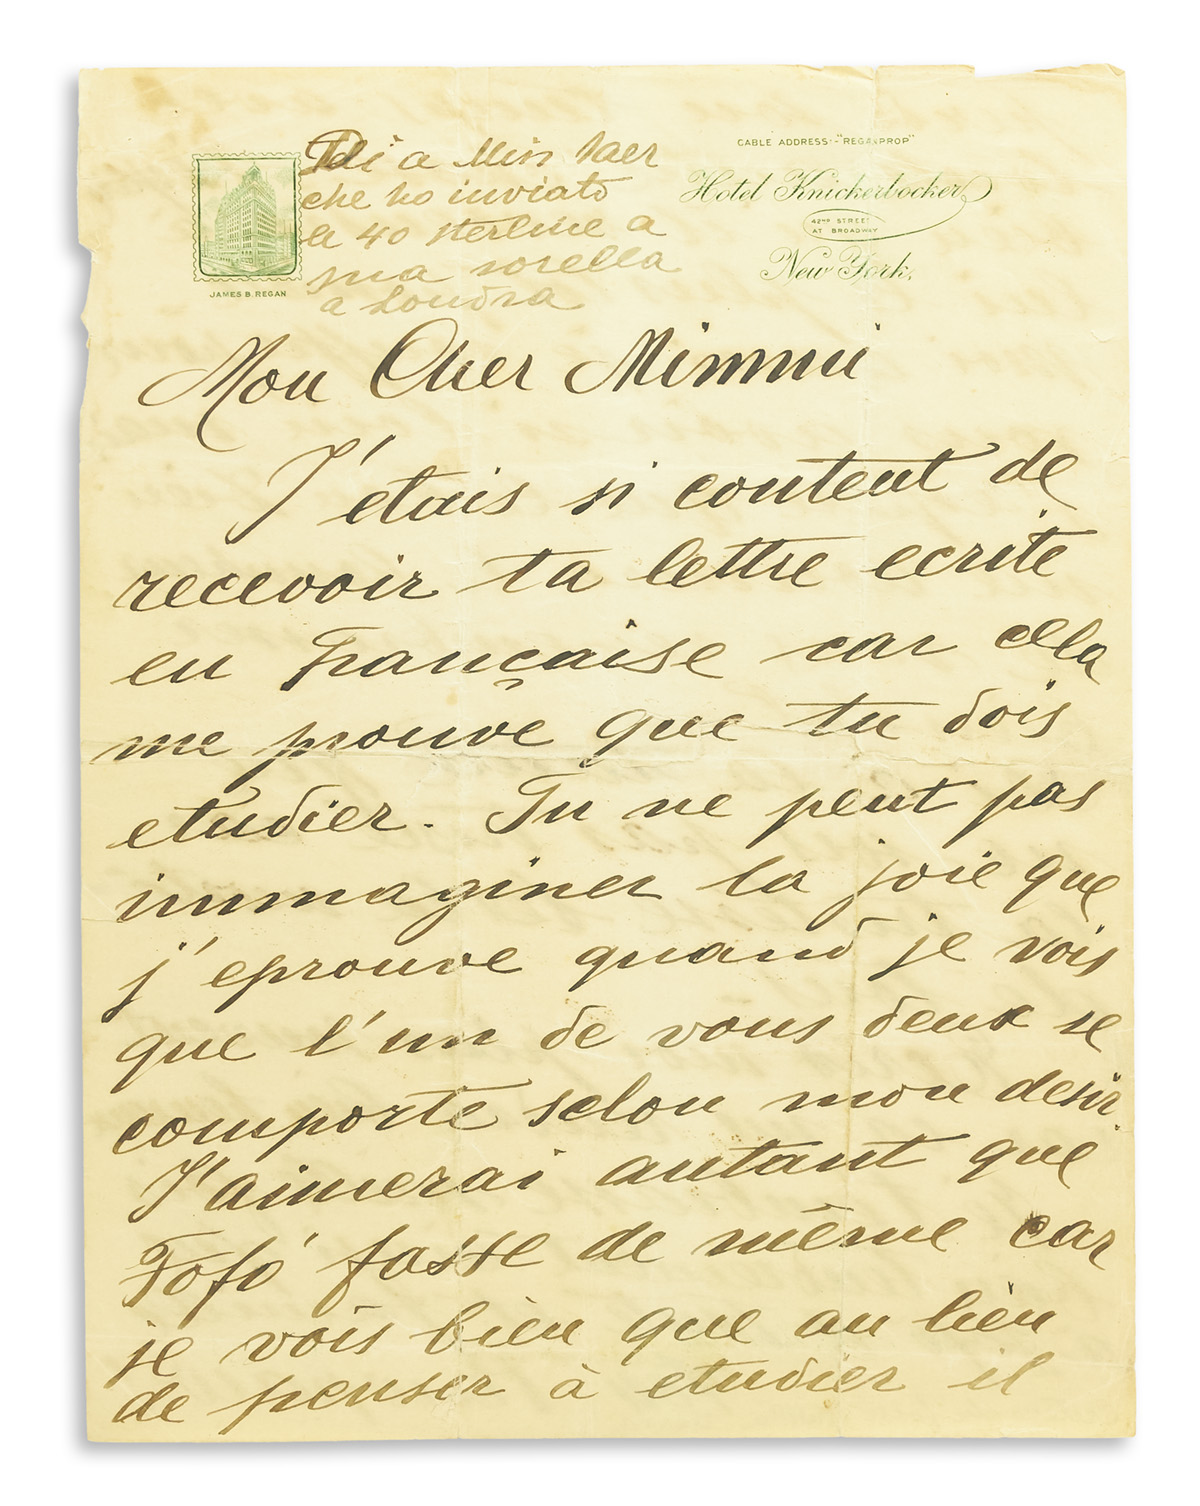 CABLE ADDRESS-"REGANPROP"
Hotel Knickerbocker
42ND STREET
AT BROADWAY
New York.
JAMES B. REGAN
Di a Miss Saer
che ho inviato
le 40 sterline a
mia sorella
a Londra
Mon Cher Mimmi
J'etais si content de
recevoir ta lettre ecrite
en Française car cela
me prouve que tu dois
etudier. Tu ne peut pas
immaginer la joie que
j'eprouve quand je vois
que l'un de vous deux se
comporte selon mon desir.
J'aimerai autant que
Fofó fasse de même car
je vois bien que au lieu
de penser à etudier il